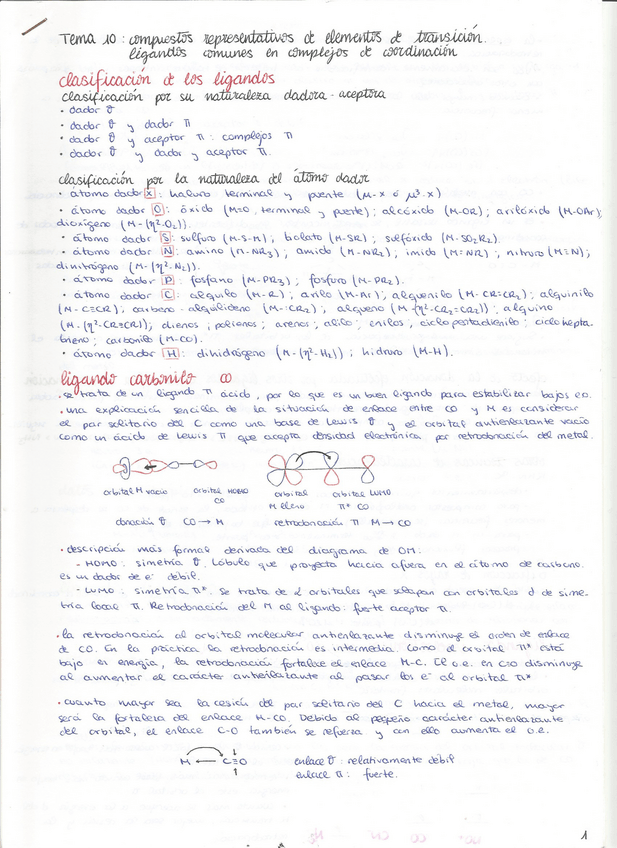 Tema 10: compuestos representativos de elementos de transición.
ligandos comunes en complejos de coordinación
clasificación de los ligandos
clasificación por su naturaleza dadora-aceptora
· dador σ
· dador σ y dador π
· dador σ y aceptor π: complejos π
· dador σ y dador y aceptor π.
clasificación por la naturaleza del átomo dador
· átomo dador X: haluro terminal y puente (μ-X ó μ³-X)
· átomo dador O: óxido (M=O, terminal y puente); alcóxido (M-OR); arilóxido (M-OAr);
dioxígeno (M-(η²-O₂)).
· átomo dador S: sulfuro (M-S-M); tiolato (M-SR); sulfóxido (M-SO₂R₂).
· átomo dador N: amino (M-NR₃); amido (M-NR₂); imido (M=NR); nitruro (M≡N);
dinitrógeno (M-(η²-N₂)).
· átomo dador P: fosfano (M-PR₃); fosfuro (M-PR₂).
· átomo dador C: alquilo (M-R); arilo (M-Ar); alquenilo (M-CR=CR₂); alquinilo
(M-C≡CR); carbeno-alquilideno (M=CR₂); alqueno (M-(η²-CR₂=CR₂)); alquino
(M-(η²-CR≡CR)); dienos; polienos; arenos; alilo; enilos; ciclopentadienilo; ciclohepta-
trieno; carbonilo (M-CO).
· átomo dador H: dihidrógeno (M-(η²-H₂)); hidruro (M-H).
ligando carbonilo CO
· se trata de un ligando π ácido, por lo que es un buen ligando para estabilizar bajos e.o.
· una explicación sencilla de la situación de enlace entre CO y M es considerar
el par solitario del C como una base de Lewis σ y el orbital antienlazante vacío
como un ácido de Lewis π que acepta densidad electrónica por retrodonación del metal.
orbital M vacío orbital HOMO CO orbital M lleno orbital LUMO π* CO
donación σ CO → M retrodonación π M → CO
· descripción más formal derivada del diagrama de OM.
- HOMO: simetría σ. Lóbulo que proyecta hacia afuera en el átomo de carbono.
es un dador de e⁻ débil.
- LUMO: simetría π*. Se trata de 2 orbitales que solapan con orbitales d de sime-
tría local π. Retrodonación del M al ligando: fuerte aceptor π.
· la retrodonación al orbital molecular antienlazante disminuye el orden de enlace
de CO. En la práctica la retrodonación es intermedia. Como el orbital π* está
bajo en energía, la retrodonación fortalece el enlace M-C. El o.e. en C=O disminuye
al aumentar el carácter antienlazante al pasar los e⁻ al orbital π*
· cuanto mayor sea la cesión del par solitario del C hacia el metal, mayor
será la fortaleza del enlace M-CO. Debido al pequeño carácter antienlazante
del orbital, el enlace C-O también se refuerza y con ello aumenta el o.e.
M ← C≡O enlace σ: relativamente débil
enlace π: fuerte.
1